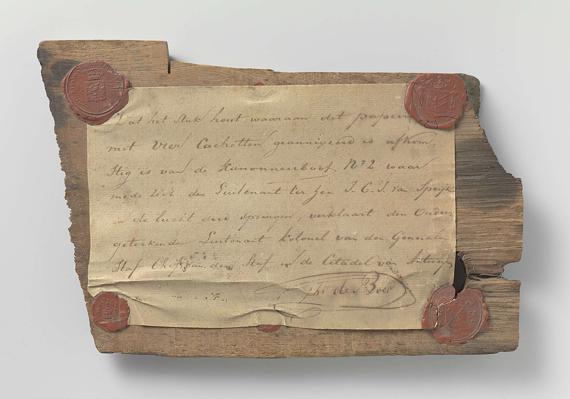 Dat het Stuk hout waaraan dit papier
met vier Cachetten geannexeerd is afkom
stig is van de Kanonneerboot No 2 waar
mede zich den Luitenant ter Zee J.C.J. van Speijk
in de lucht deed springen, verklaart den Onder
geteekende Luitenant Kolonel van den Generalen
Staf Chef van den Staf in de Citadel van Antwerp
de Boer